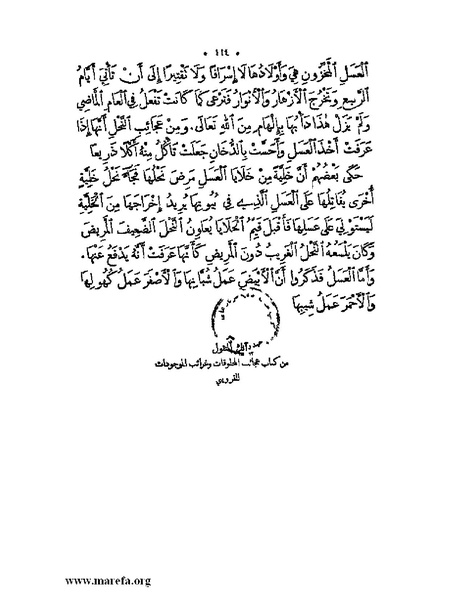 • ١١٤ •
الْعَسَلِ الْمَخْزُونِ هِيَ وَأَوْلَادُهَا لَا إِسْرَافًا وَلَا تَقْتِيرًا إِلَى أَنْ تَأْتِيَ أَيَّامُ
الرَّبِيعِ وَتَخْرُجَ الْأَزْهَارُ وَالْأَنْوَارُ فَتَرْعَى كَمَا كَانَتْ تَفْعَلُ فِي الْعَامِ الْمَاضِي
وَلَمْ يَزَلْ هٰذَا دَأْبُهَا بِإِلْهَامٍ مِنَ اللهِ تَعَالَى. وَمِنْ عَجَائِبِ النَّحْلِ أَنَّهَا إِذَا
عَرَفَتْ أَخْذَ الْعَسَلِ وَأَحَسَّتْ بِالدُّخَانِ جَعَلَتْ تَأْكُلُ مِنْهُ أَكْلًا ذَرِيعًا
حَكَى بَعْضُهُمْ أَنَّ خَلِيَّةً مِنْ خَلَايَا الْعَسَلِ مَرِضَ نَحْلُهَا فَجَاءَ نَحْلُ خَلِيَّةٍ
أُخْرَى يُقَاتِلُهَا عَلَى الْعَسَلِ الَّذِي فِي بُيُوتِهَا يُرِيدُ إِخْرَاجَهَا مِنَ الْخَلِيَّةِ
لِيَسْتَوْلِيَ عَلَى عَسَلِهَا فَأَقْبَلَ قَيِّمُ الْخَلَايَا يُعَاوِنُ النَّحْلَ الضَّعِيفَ الْمَرِيضَ
وَكَانَ يَلْسَعُهُ النَّحْلُ الْغَرِيبُ دُونَ الْمَرِيضِ كَأَنَّهَا عَرَفَتْ أَنَّهُ يَدْفَعُ عَنْهَا.
وَأَمَّا الْعَسَلُ فَذَكَرُوا أَنَّ الْأَبْيَضَ عَمَلُ شُبَّانِهَا وَالْأَصْفَرَ عَمَلُ كُهُولِهَا
وَالْأَحْمَرَ عَمَلُ شِيبِهَا
من كتاب عجائب المخلوقات وغرائب الموجودات
للقزويني
www.marefa.org